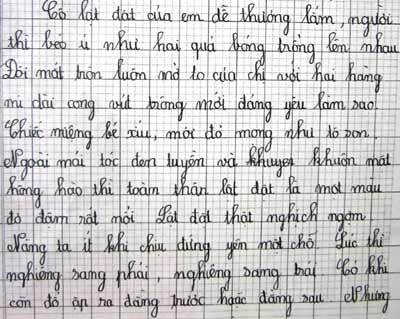 Cô lật đật của em dễ thương lắm, người
thì béo ú như hai quả bóng trồng lên nhau
Đôi mắt tròn luôn mở to của chị với hai hàng
mi dài cong vút trông mới đáng yêu làm sao.
Chiếc miệng bé xíu, môi đỏ mọng như tô son.
Ngoài mái tóc đen tuyền và khuyen khuôn mặt
hồng hào thì toàn thân lật đật là một màu
đỏ đậm rất nổi Lật đật thật nghịch ngợm
Nàng ta ít khi chịu đứng yên một chỗ. Lúc thì
nghiêng sang phải, nghiêng sang trái. Có khi
còn đổ ập ra đằng trước hoặc đằng sau. Nhưng